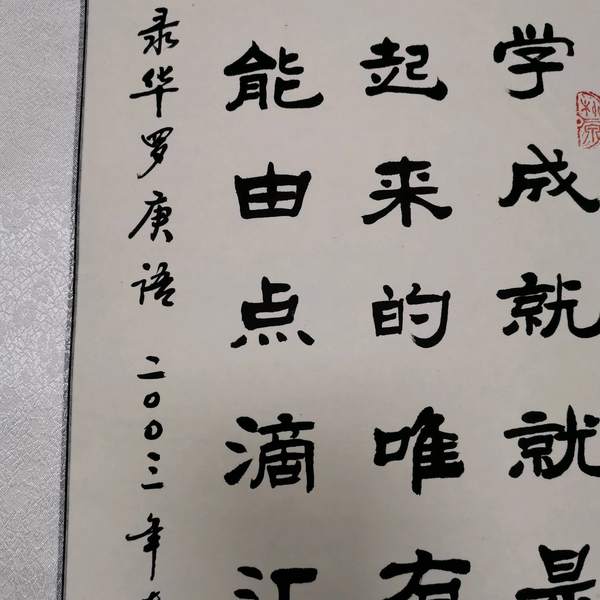 学成就就是
起来的唯有
能由点滴汇
录华罗庚语 二〇〇三年